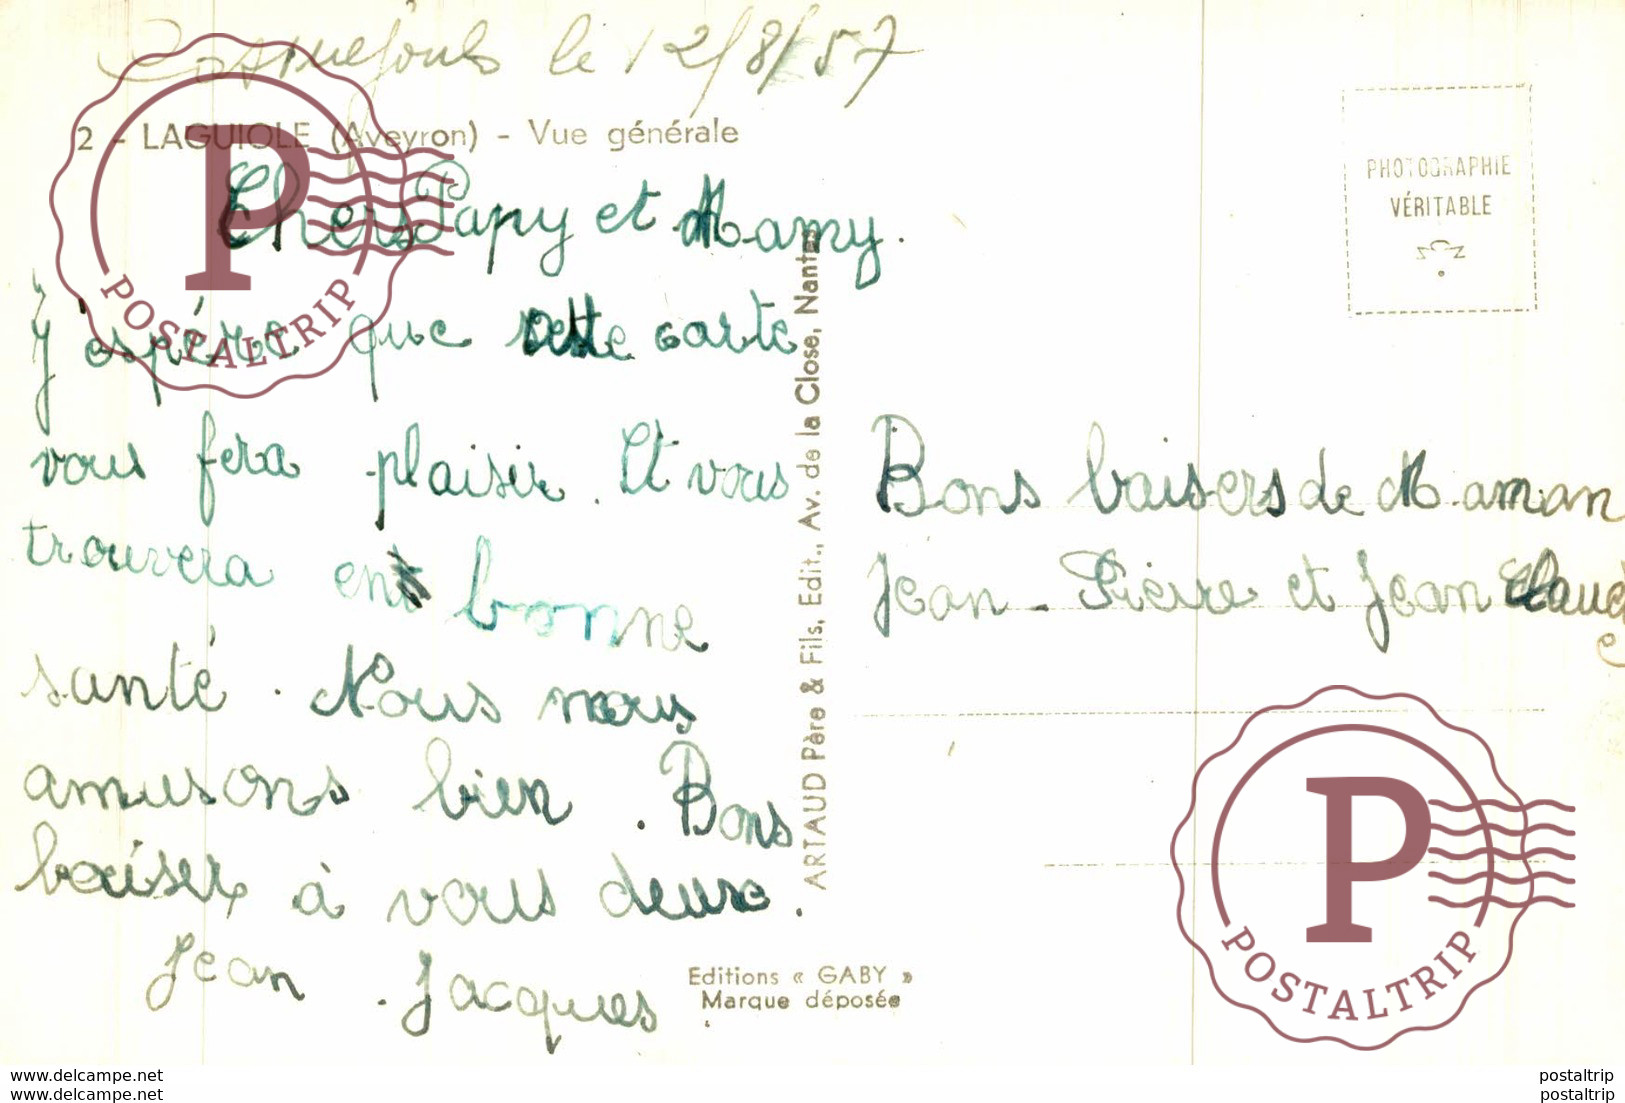 le 12/8/57
2 - LAGUIOLE (Aveyron) - Vue générale
Chers Papy et Mamy.
J'espére que cette carte
vous fera plaisir. Et vous
trouvera en bonne
santé. Nous nous
amusons bien. Bons
baiser à vous deux.
Jean. Jacques
ARTAUD Père & Fils, Edit., Av. de la Close, Nantes
Editions « GABY »
Marque déposée
PHOTOGRAPHIE
VÉRITABLE
Bons baisers de Maman
Jean-Pierre et Jean Claud
e
P
POSTALTRIP
P
POSTALTRIP
www.delcampe.net
www.delcampe.net
postaltrip
postaltrip